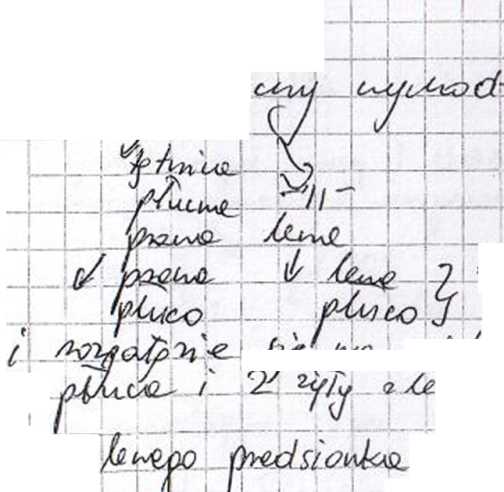 wychod
tętnica
płucna -||-
prawa lewa
↓ prawe ↓ lewe }
płuco płuco
i rozgałęzie się na
płuca i 2 żyły z le
lewego przedsionka